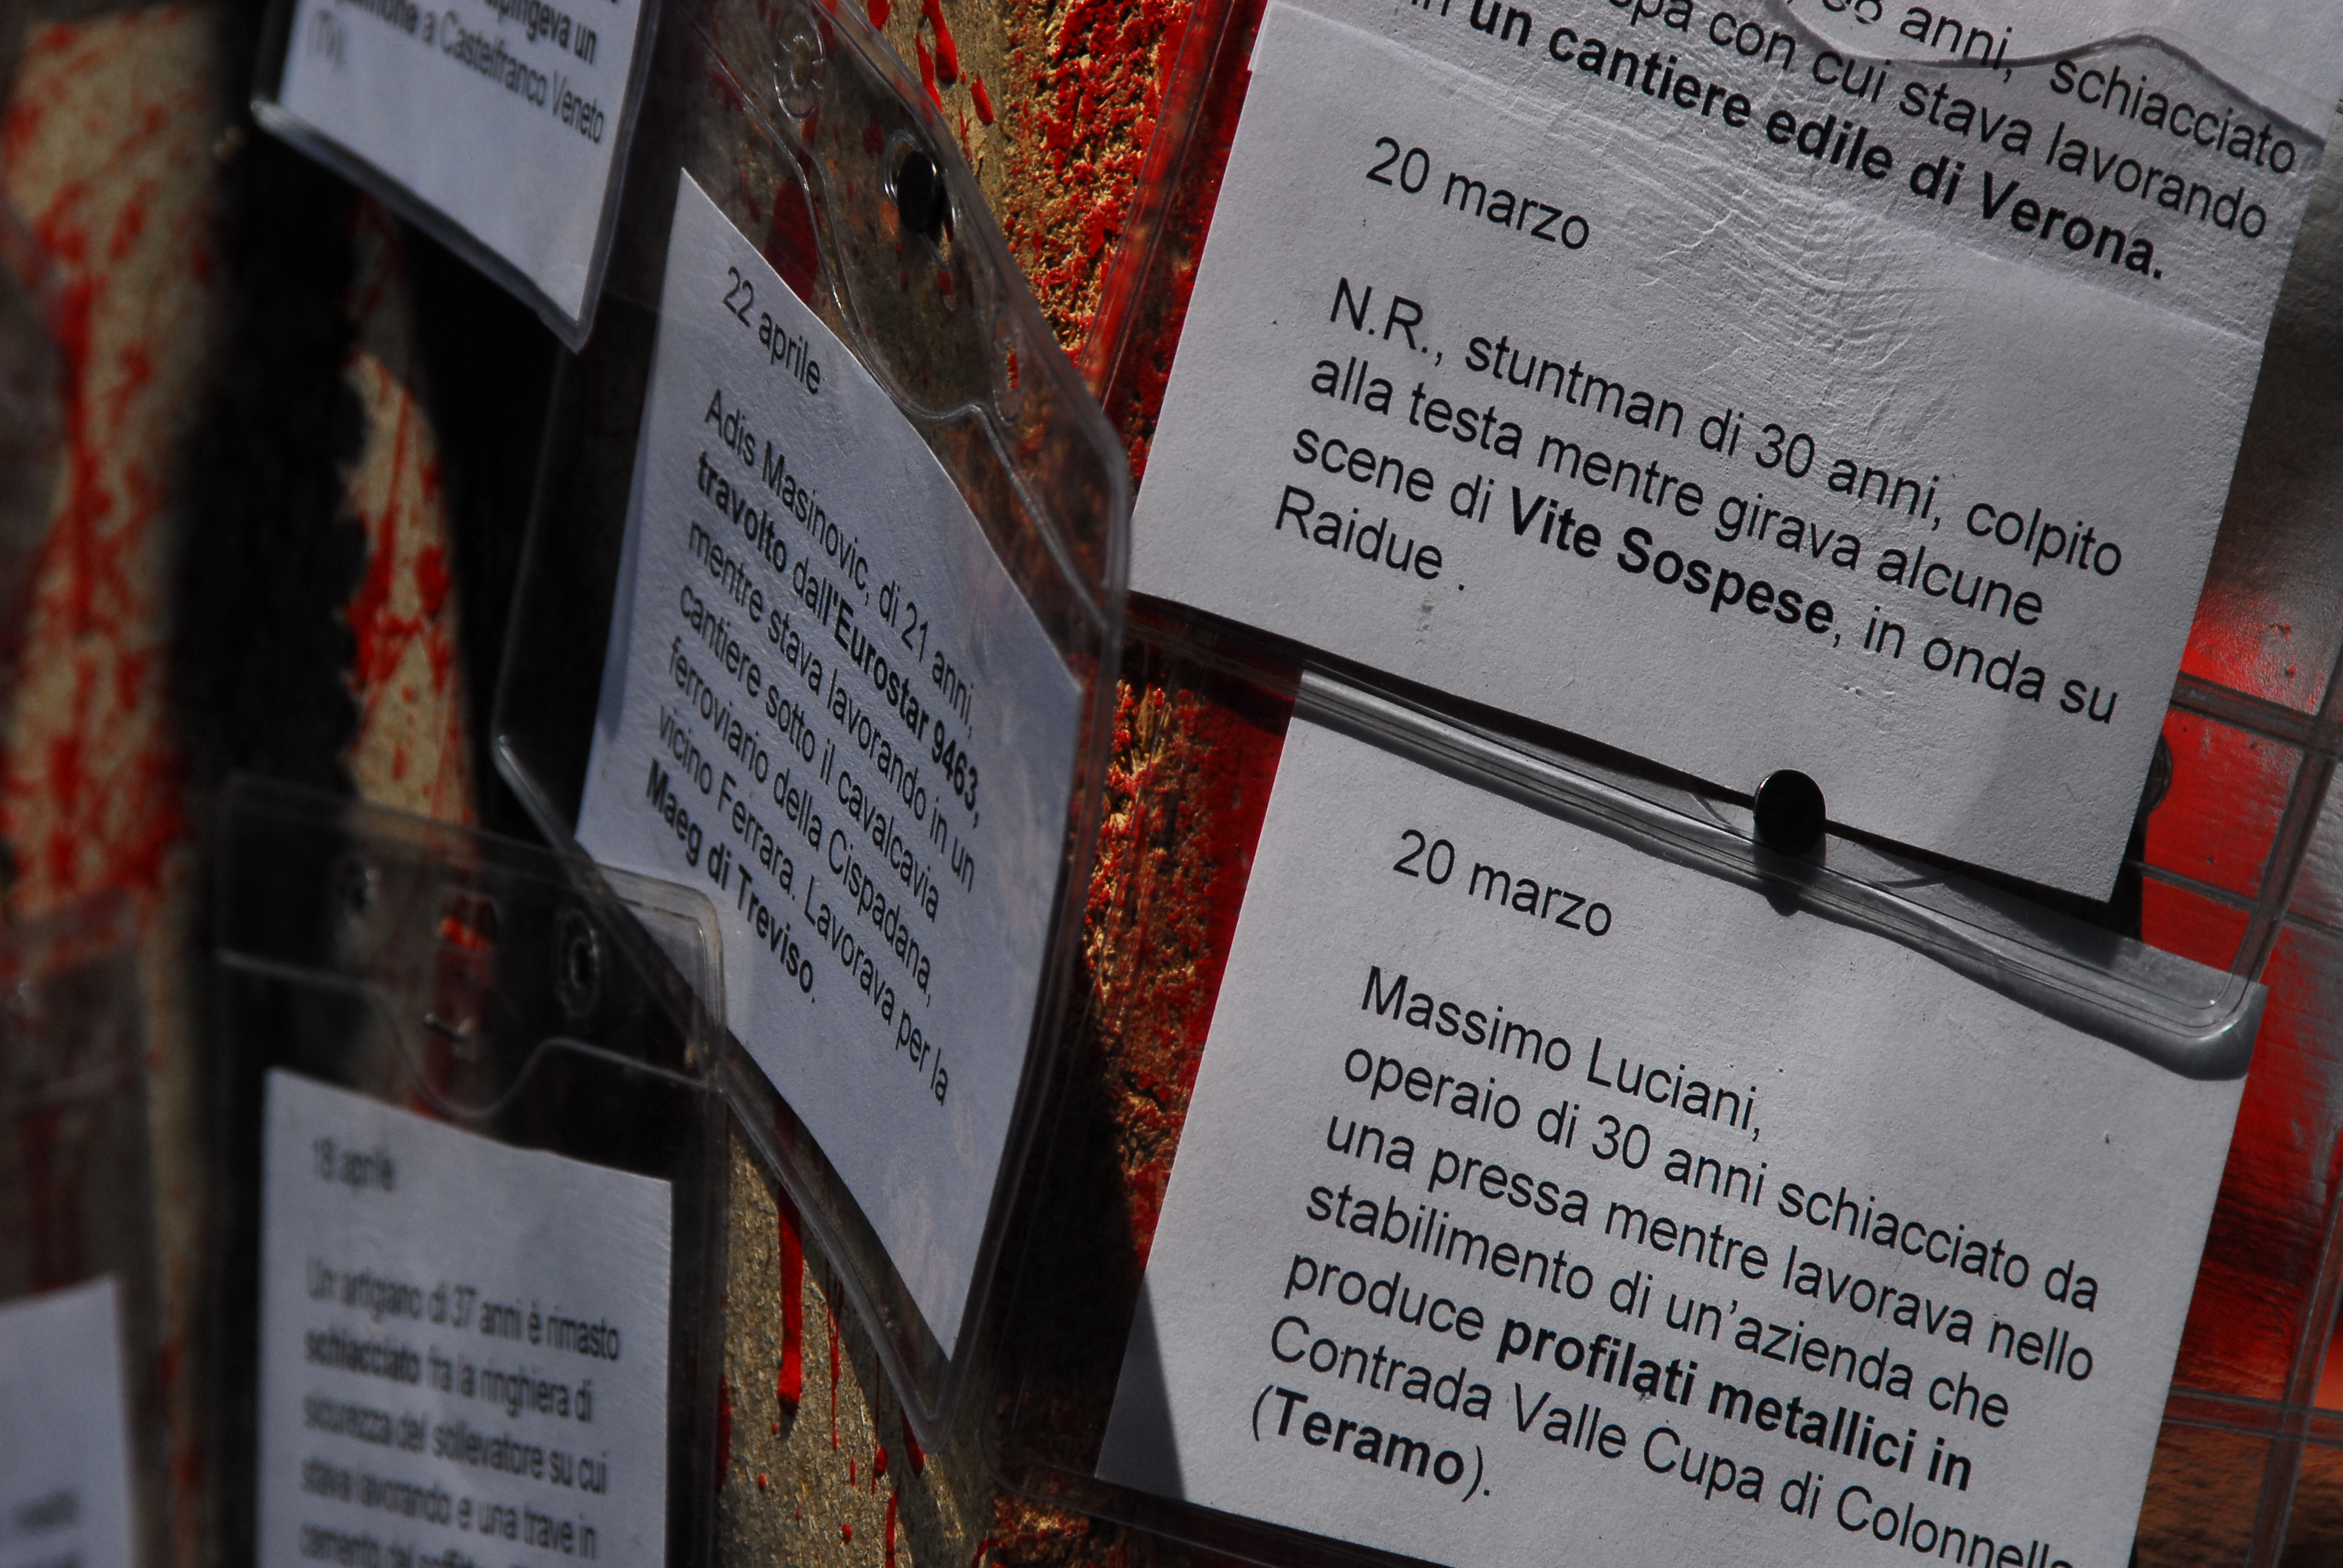 ngeva un
a Castelfranco Veneto
(TV).
22 aprile
Adis Masinovic, di 21 anni,
travolto dall'Eurostar 9463,
mentre stava lavorando in un
cantiere sotto il cavalcavia
ferroviario della Cispadana,
vicino Ferrara. Lavorava per la
Maeg di Treviso.
aprile
Un artigano di 37 anni è rimasto
schiacciato fra la ringhiera di
sicurezza del sollevatore su cui
stava lavorando e una trave in
cemento del
anni, schiacciato
con cui stava lavorando
in un cantiere edile di Verona.
20 marzo
N.R., stuntman di 30 anni, colpito
alla testa mentre girava alcune
scene di Vite Sospese, in onda su
Raidue .
20 marzo
Massimo Luciani,
operaio di 30 anni schiacciato da
una pressa mentre lavorava nello
stabilimento di un’azienda che
produce profilati metallici in
Contrada Valle Cupa di Colonnella
(Teramo).